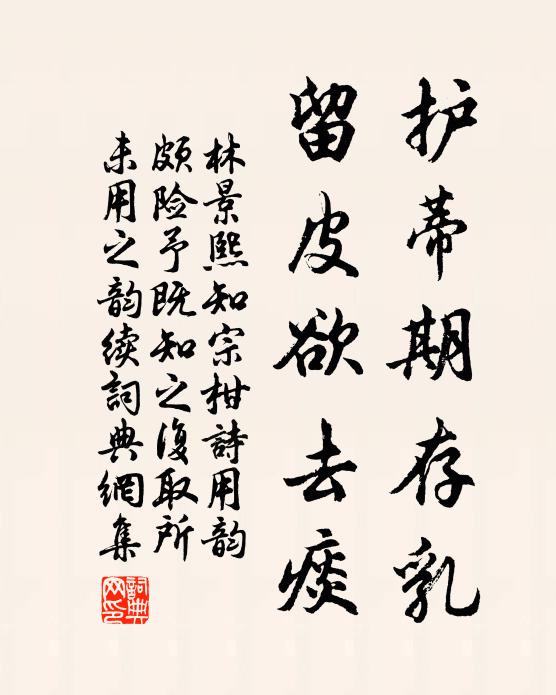 护蒂期存乳
留皮欲去痰
林景熙知宗柑詩用韵
颇险予既知之復取所
未用之韵续詞典網集
詞典网印